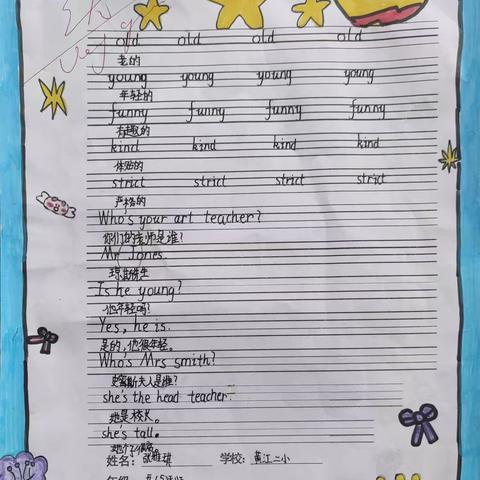 old old old old
老的
young young young young
年轻的
funny funny funny funny
有趣的
kind kind kind kind
体贴的
strict strict strict strict
严格的
Who's your art teacher?
你们的老师是谁?
Mr Jones.
琼斯先生
Is he young?
他年轻吗?
Yes, he is.
是的,他很年轻。
Who's Mrs smith?
史密斯夫人是谁?
she's the head teacher.
她是校长。
she's tall.
姓名: 学校: 黄江二小